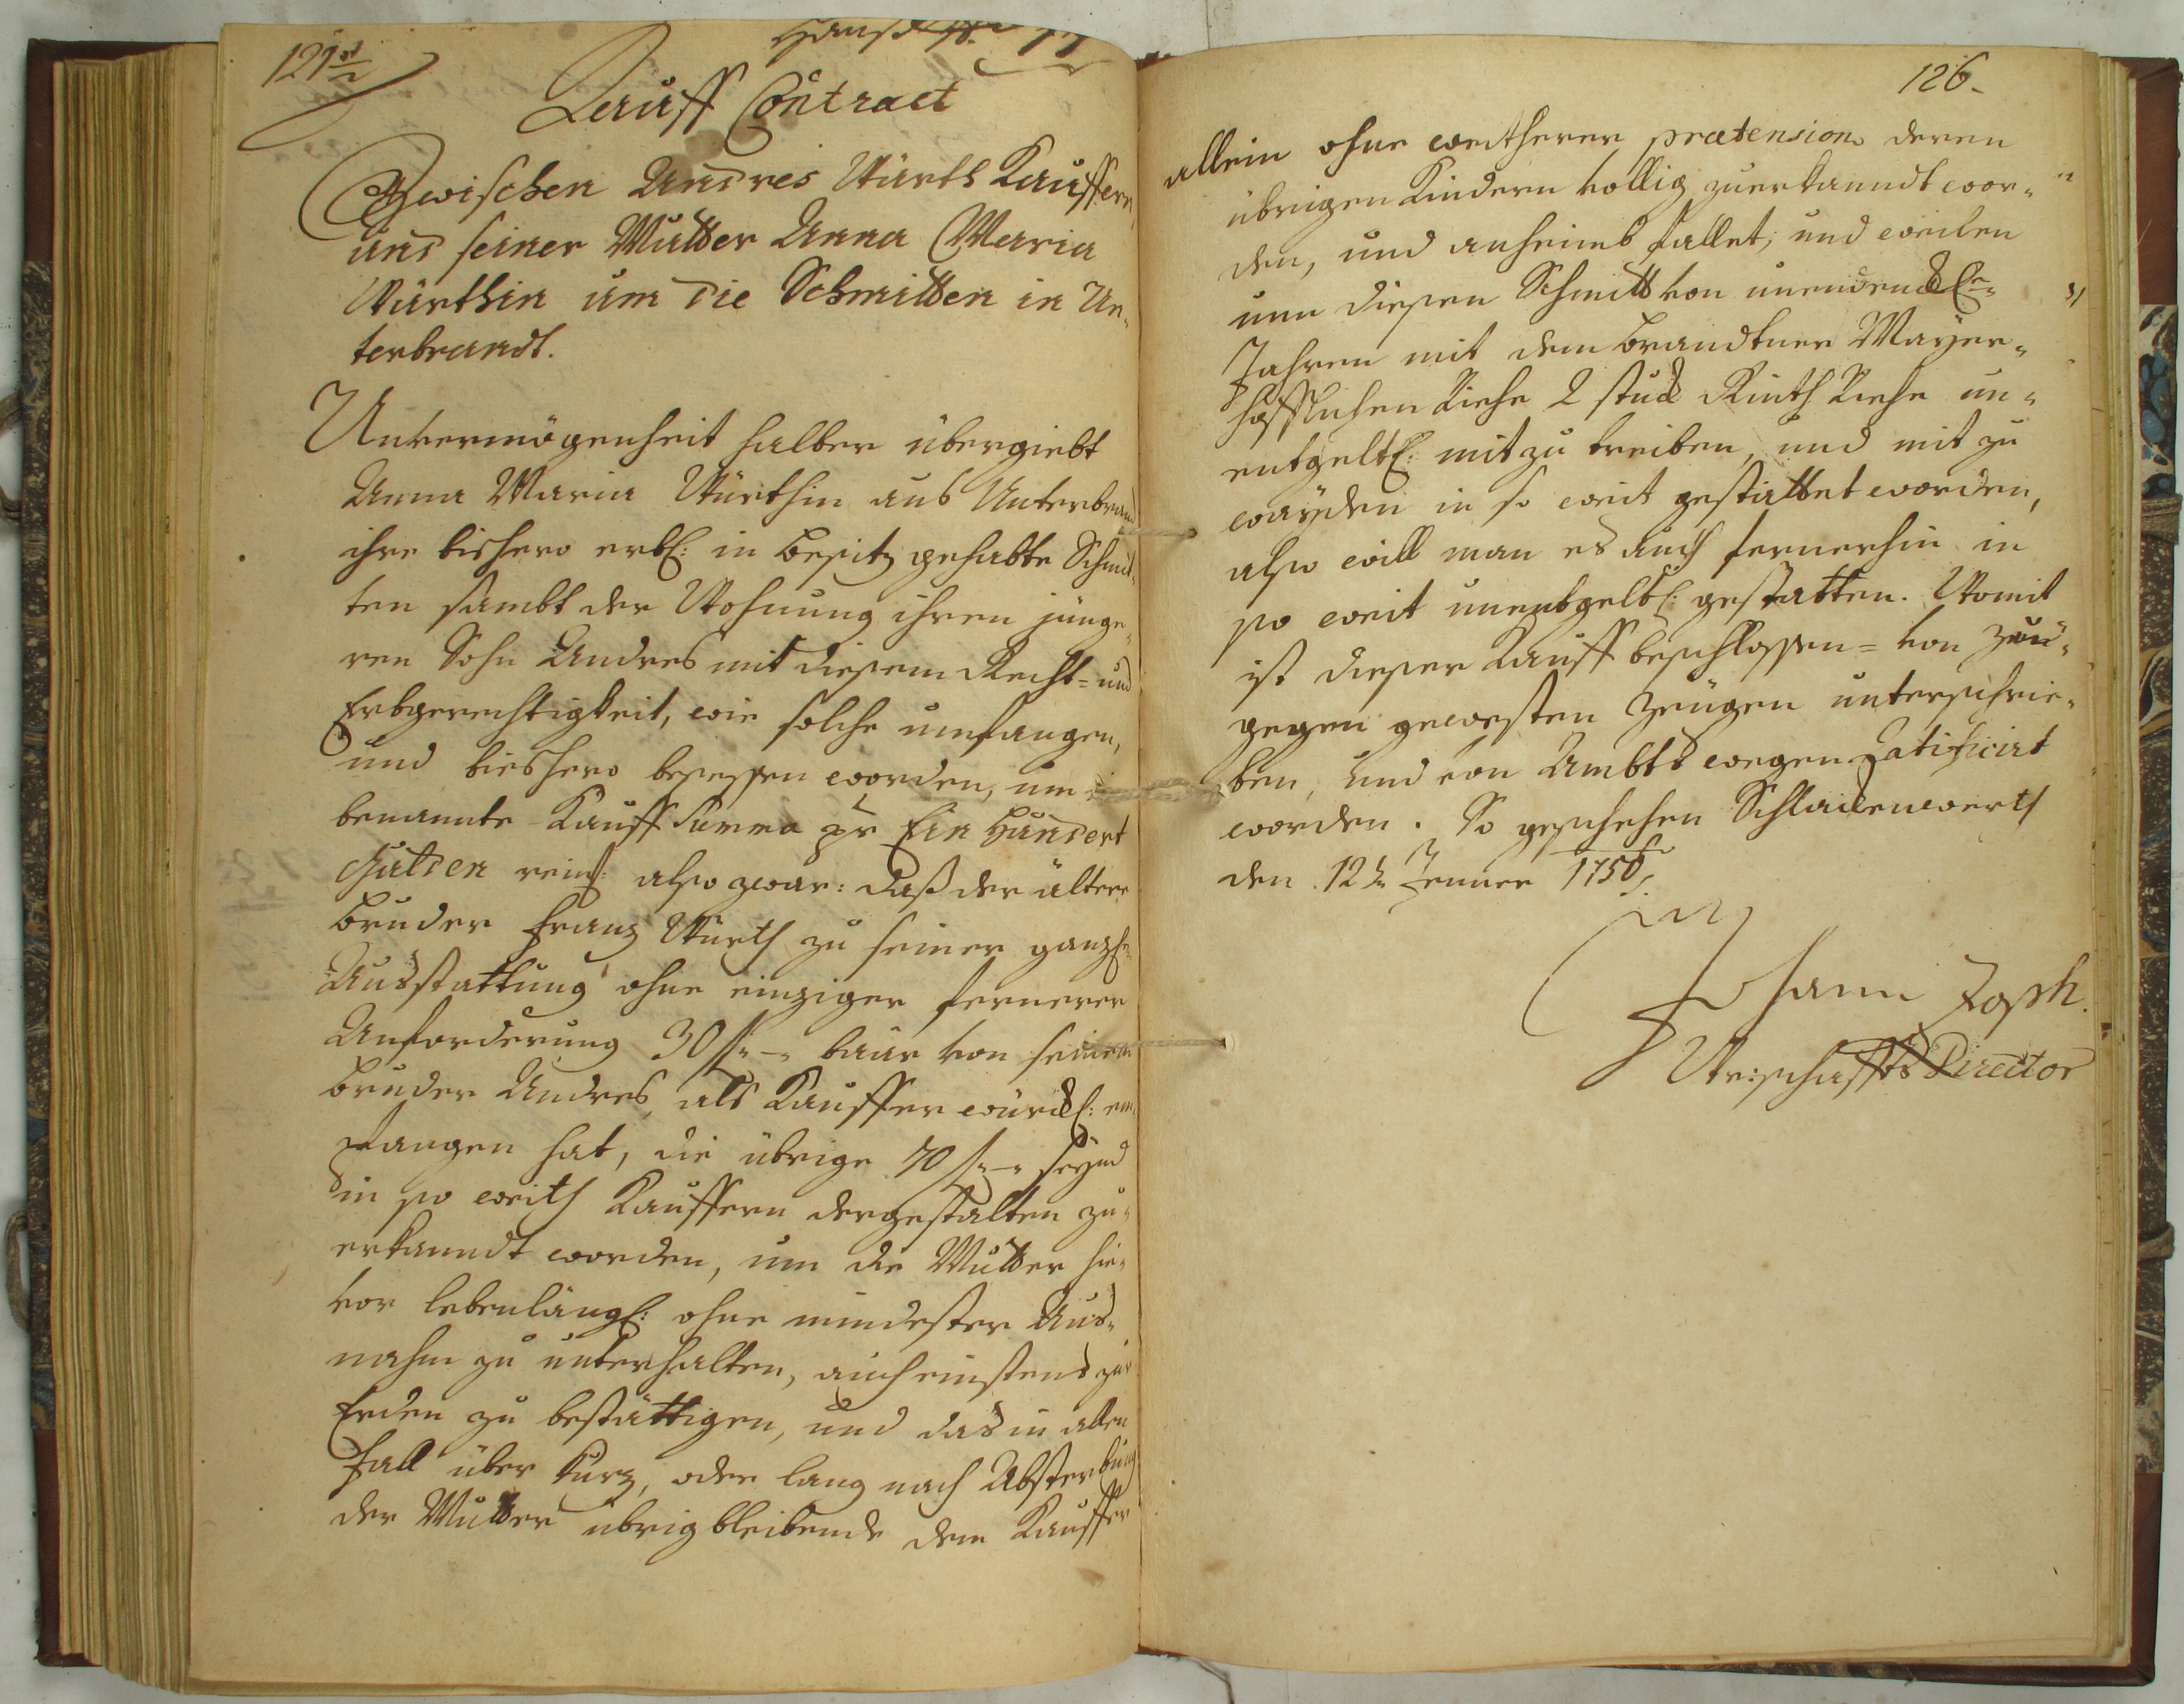 121st
Kauff Contract
Zwischen Andres Würth Kauffern,
und seiner Mutter Anna Maria
Würthin um die Schmitten in Un-
terbrandt.
Unvermögenheit halber übergiebt
Anna Maria Würthin aus Unterbrand
ihre bishero erbl: in besitz gehabte Schmit-
ten sambt der Wohnung ihren jünge-
ren Sohn Andres mit diesem Recht- und
Erbgerechtigkeit, wie solche umfangen,
und bieshero besessen worden, um
benannte Kauff Summa pr Ein Hundert
Gulden reins: also zwar: daß der ältere
bruder Franz Würth zu seiner ganzl:
Ausstattung ohne einziger fernerer
Anforderung 30 f"-" baar von seinem
bruder Andres, als Kauffer würckl: em-
pfangen hat, die übrige 70 f"-" seynd
in so weith Kauffern dergestalten zu-
erkanndt worden, um die Mutter hie-
vor lebenläng: ohne mindester Aus-
nahm zu unterhalten, auch einstens zur
Erden zu bestättigen, und das in allen
Fall über kurz, oder lang nach Absterbung
der Mutter übrig bleibende dem Kauffer
126.
allein ohne weitherer praetension deren
übrigen Kindern vollig zuerkanndt wor-
den, und anheimb fallet; und weilen
nun diesen Schmitt von
Jahren mit dem brandtner Mayer-
höfflichen Viehe 2 stuck Rinth Viehe un-
entgeltl: mitzu treiben, und mit zu
wayden in so weit gestattet worden,
also will man es auch fernerhin in
so weit unentgeltl: gestatten. Womit
ist dieser Kauff beschlossen- von Zu-
gegen gewesten Zeugen unterschrie-
ben, und von Ambts wegen Ratificirt
worden. So geschehen Schlackenwerth
den 12t Jenner 1750
Johann Joseph
Wirtschaffts Director